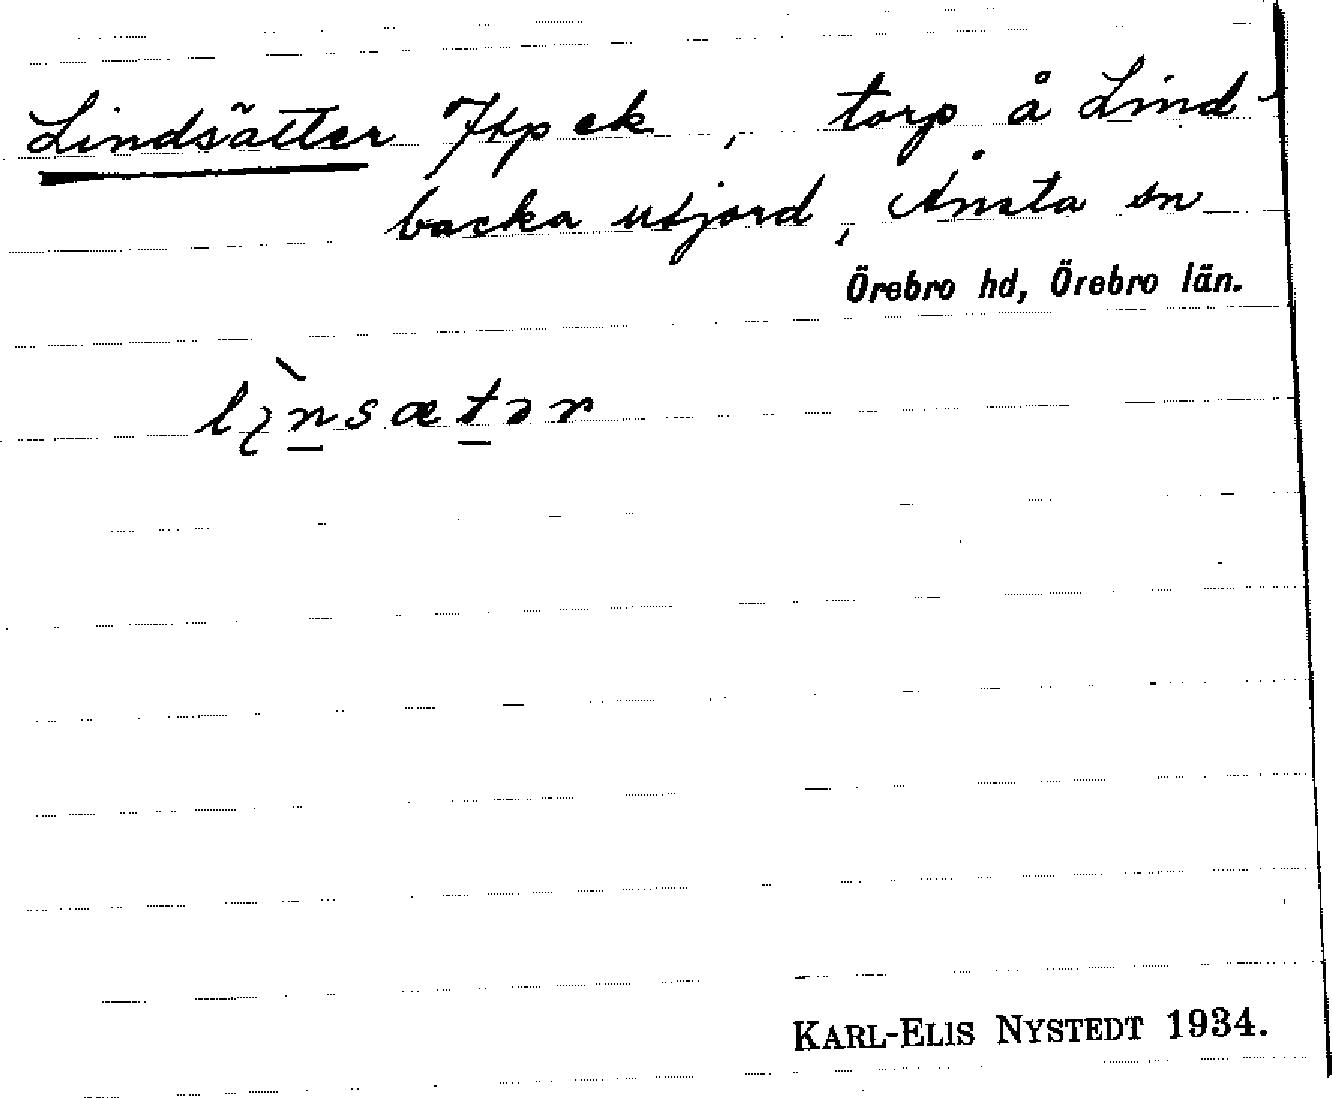 Lindsätter Jtp ek, torp å Lind-
backa utjord, Ånsta sn
Örebro hd, Örebro län.
lìnsætər
KARL-ELIS NYSTEDT 1934.